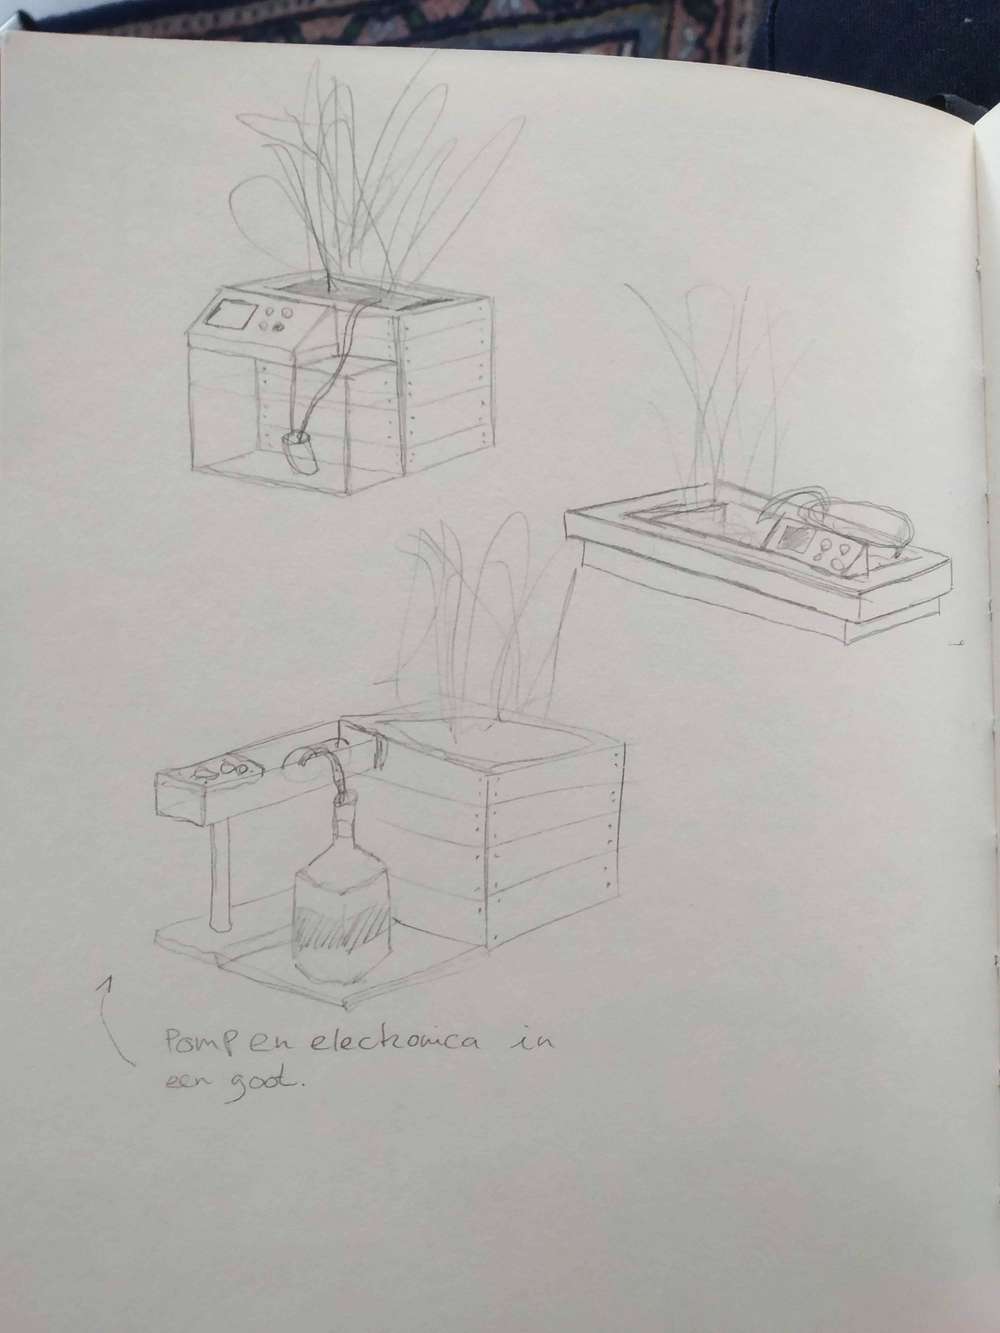 Pomp en electronica in
een goot.